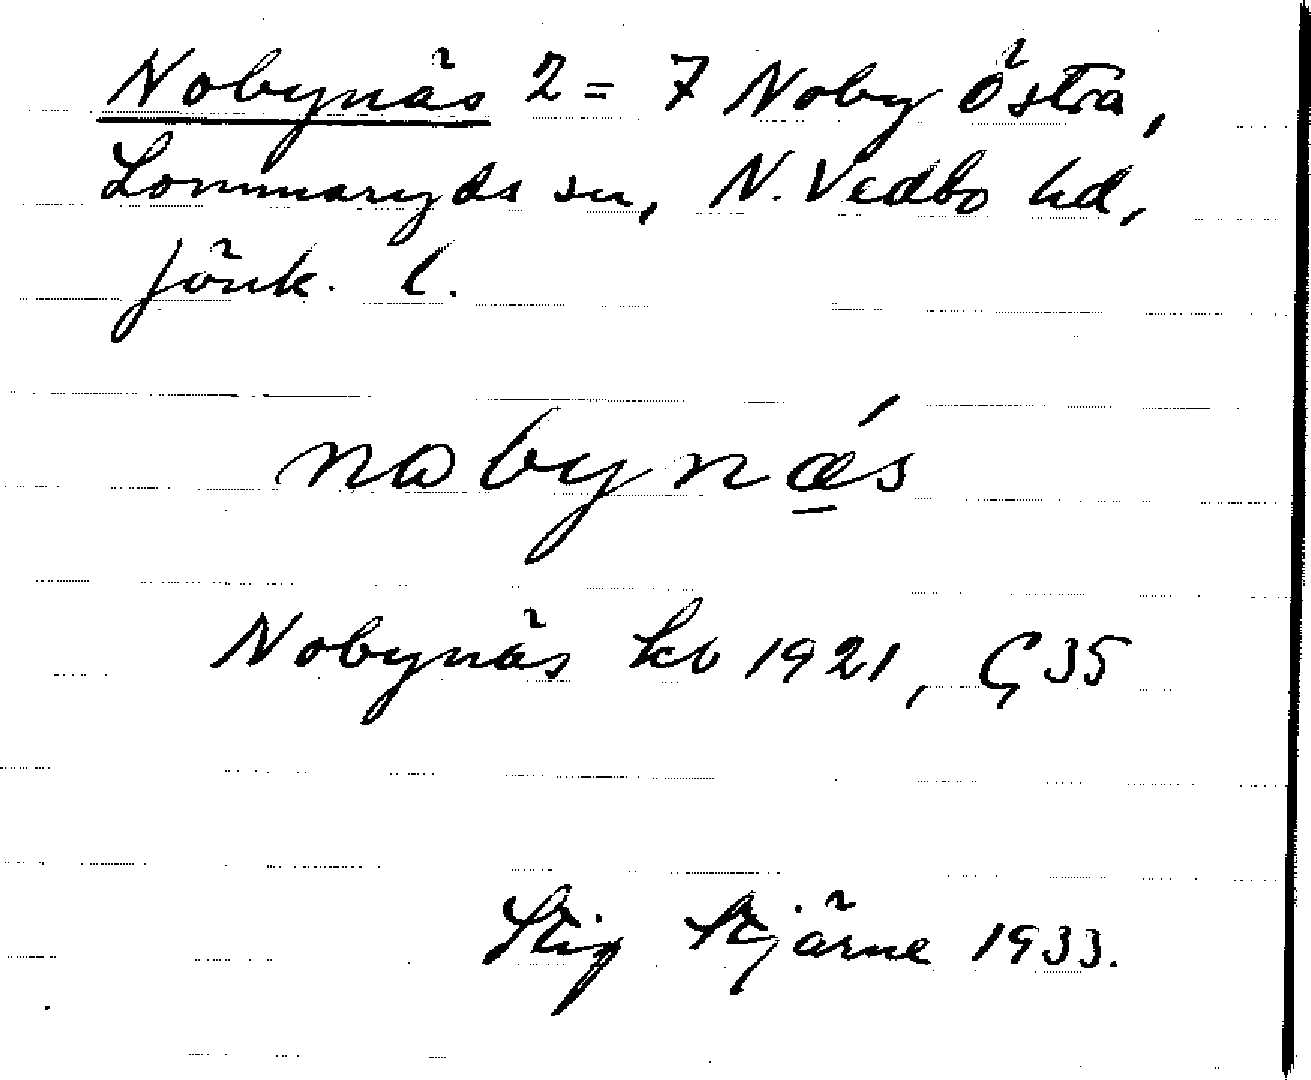 Nobynäs 2 = 7 Noby Östra,
Lommaryds sn, N. Vedbo hd,
Jönk. l.
nobynǽ̱s
Nobynäs kb 1921, Ç 35
Stig Stjärne 1933.